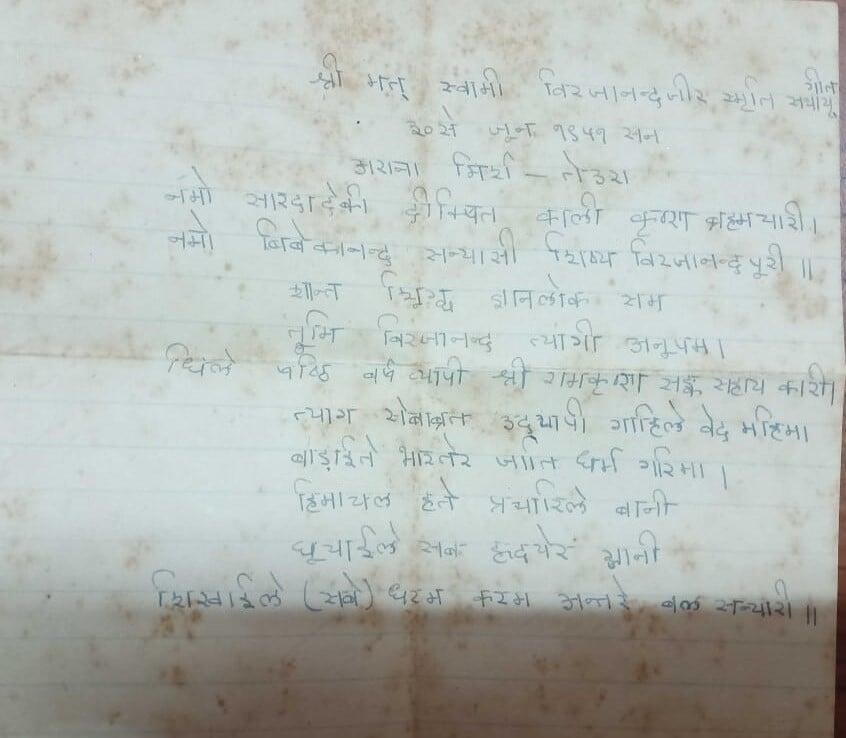 श्री मत् स्वामी विरजानन्दजीर स्मृति गीत
३०से जून १९५१ सन
मिर्श — तेउरा
नमो सारदादेवी दीक्षित काली कृष्ण ब्रह्मचारी।
नमो बिबेकानन्द सन्यासी शिष्य विरजानन्द पूरी ॥
शान्त स्निग्द्ध ज्ञानलोक सम
तूमि विरजानन्द त्यागी अनूपम।
छिले षष्ठि वर्ष व्यापी श्री रामकृष्ण सङ्घ सहाय कारी।
त्याग सेबाब्रत उद्यापी गाहिले वेद महिमा
बाड़ाईते भारतेर जाति धर्म गरिमा।
हिमाचल हते प्रचारिले बानी
घूचाईले सब हृदयेर ग्लानी
शिखाईले (सबे) धरम करम अन्तरे बल सन्चारी ॥